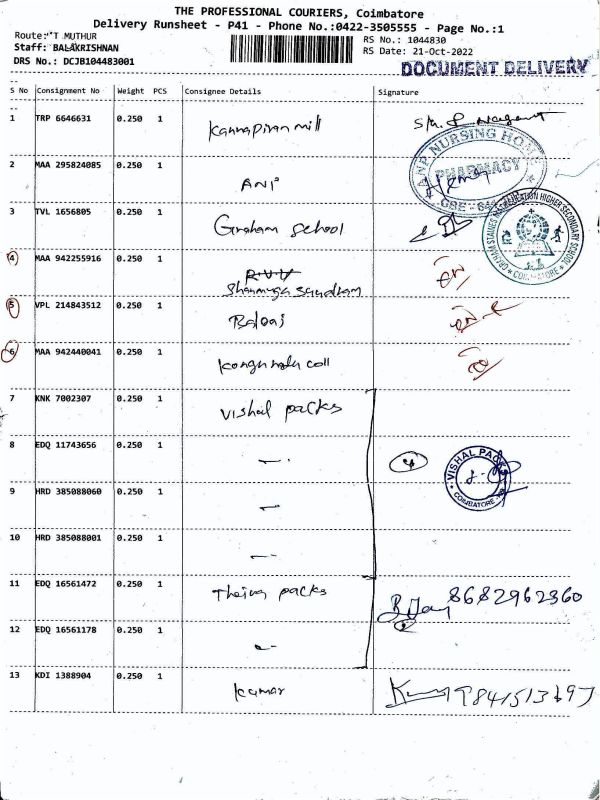 THE PROFESSIONAL COURIERS, Coimbatore
Delivery Runsheet - P41 - Phone No.:0422-3505555 - Page No.:1
Route: T MUTHUR
RS No.: 1044830
Staff: BALAKRISHNAN
RS Date: 21-Oct-2022
DRS No.: DCJB104483001
DOCUMENT DELIVERY
S No Consignment No Weight PCS Consignee Details Signature
1 TRP 6646631 0.250 1 Kannapiran mill
ANP NURSING HOME
PHARMACY
2 MAA 295824085 0.250 1 ANP
3 TVL 1656805 0.250 1 Gresham School
HIGHER SECONDARY SCHOOL
COIMBATORE
4 MAA 942255916 0.250 1 R.V.V
Shanmuga Sundaram
5 VPL 214843512 0.250 1 Balaaj
6 MAA 942440041 0.250 1 Kongunadu coll
7 KNK 7002307 0.250 1 Vishal packs
8 EDQ 11743656 0.250 1 4
VISHAL PACKS
COIMBATORE
9 HRD 385088060 0.250 1
10 HRD 385088001 0.250 1
11 EDQ 16561472 0.250 1 packs 8682962360
12 EDQ 16561178 0.250 1 2
13 KDI 1388904 0.250 1 Kumar